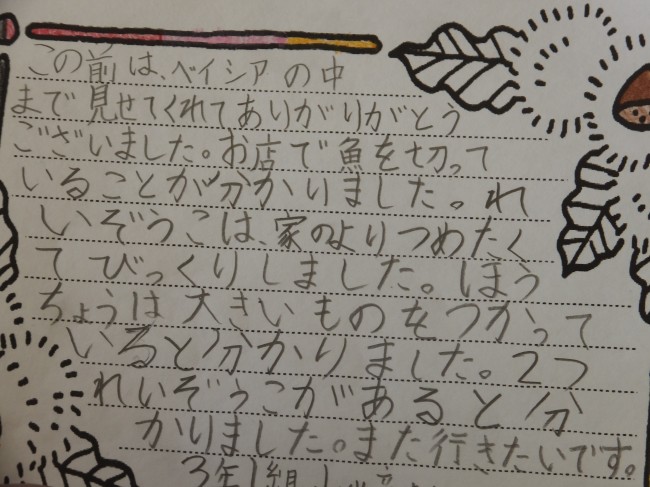 この前は、ベイシアの中
まで見せてくれてありがりがとう
ございました。お店で魚を切って
いることが分かりました。れ
いぞうこは、家のよりつめたく
てびっくりしました。ほう
ちょうは大きいものをつかって
いると分かりました。2つ
れいぞうこがあると分
かりました。また行きたいです。
3年1組